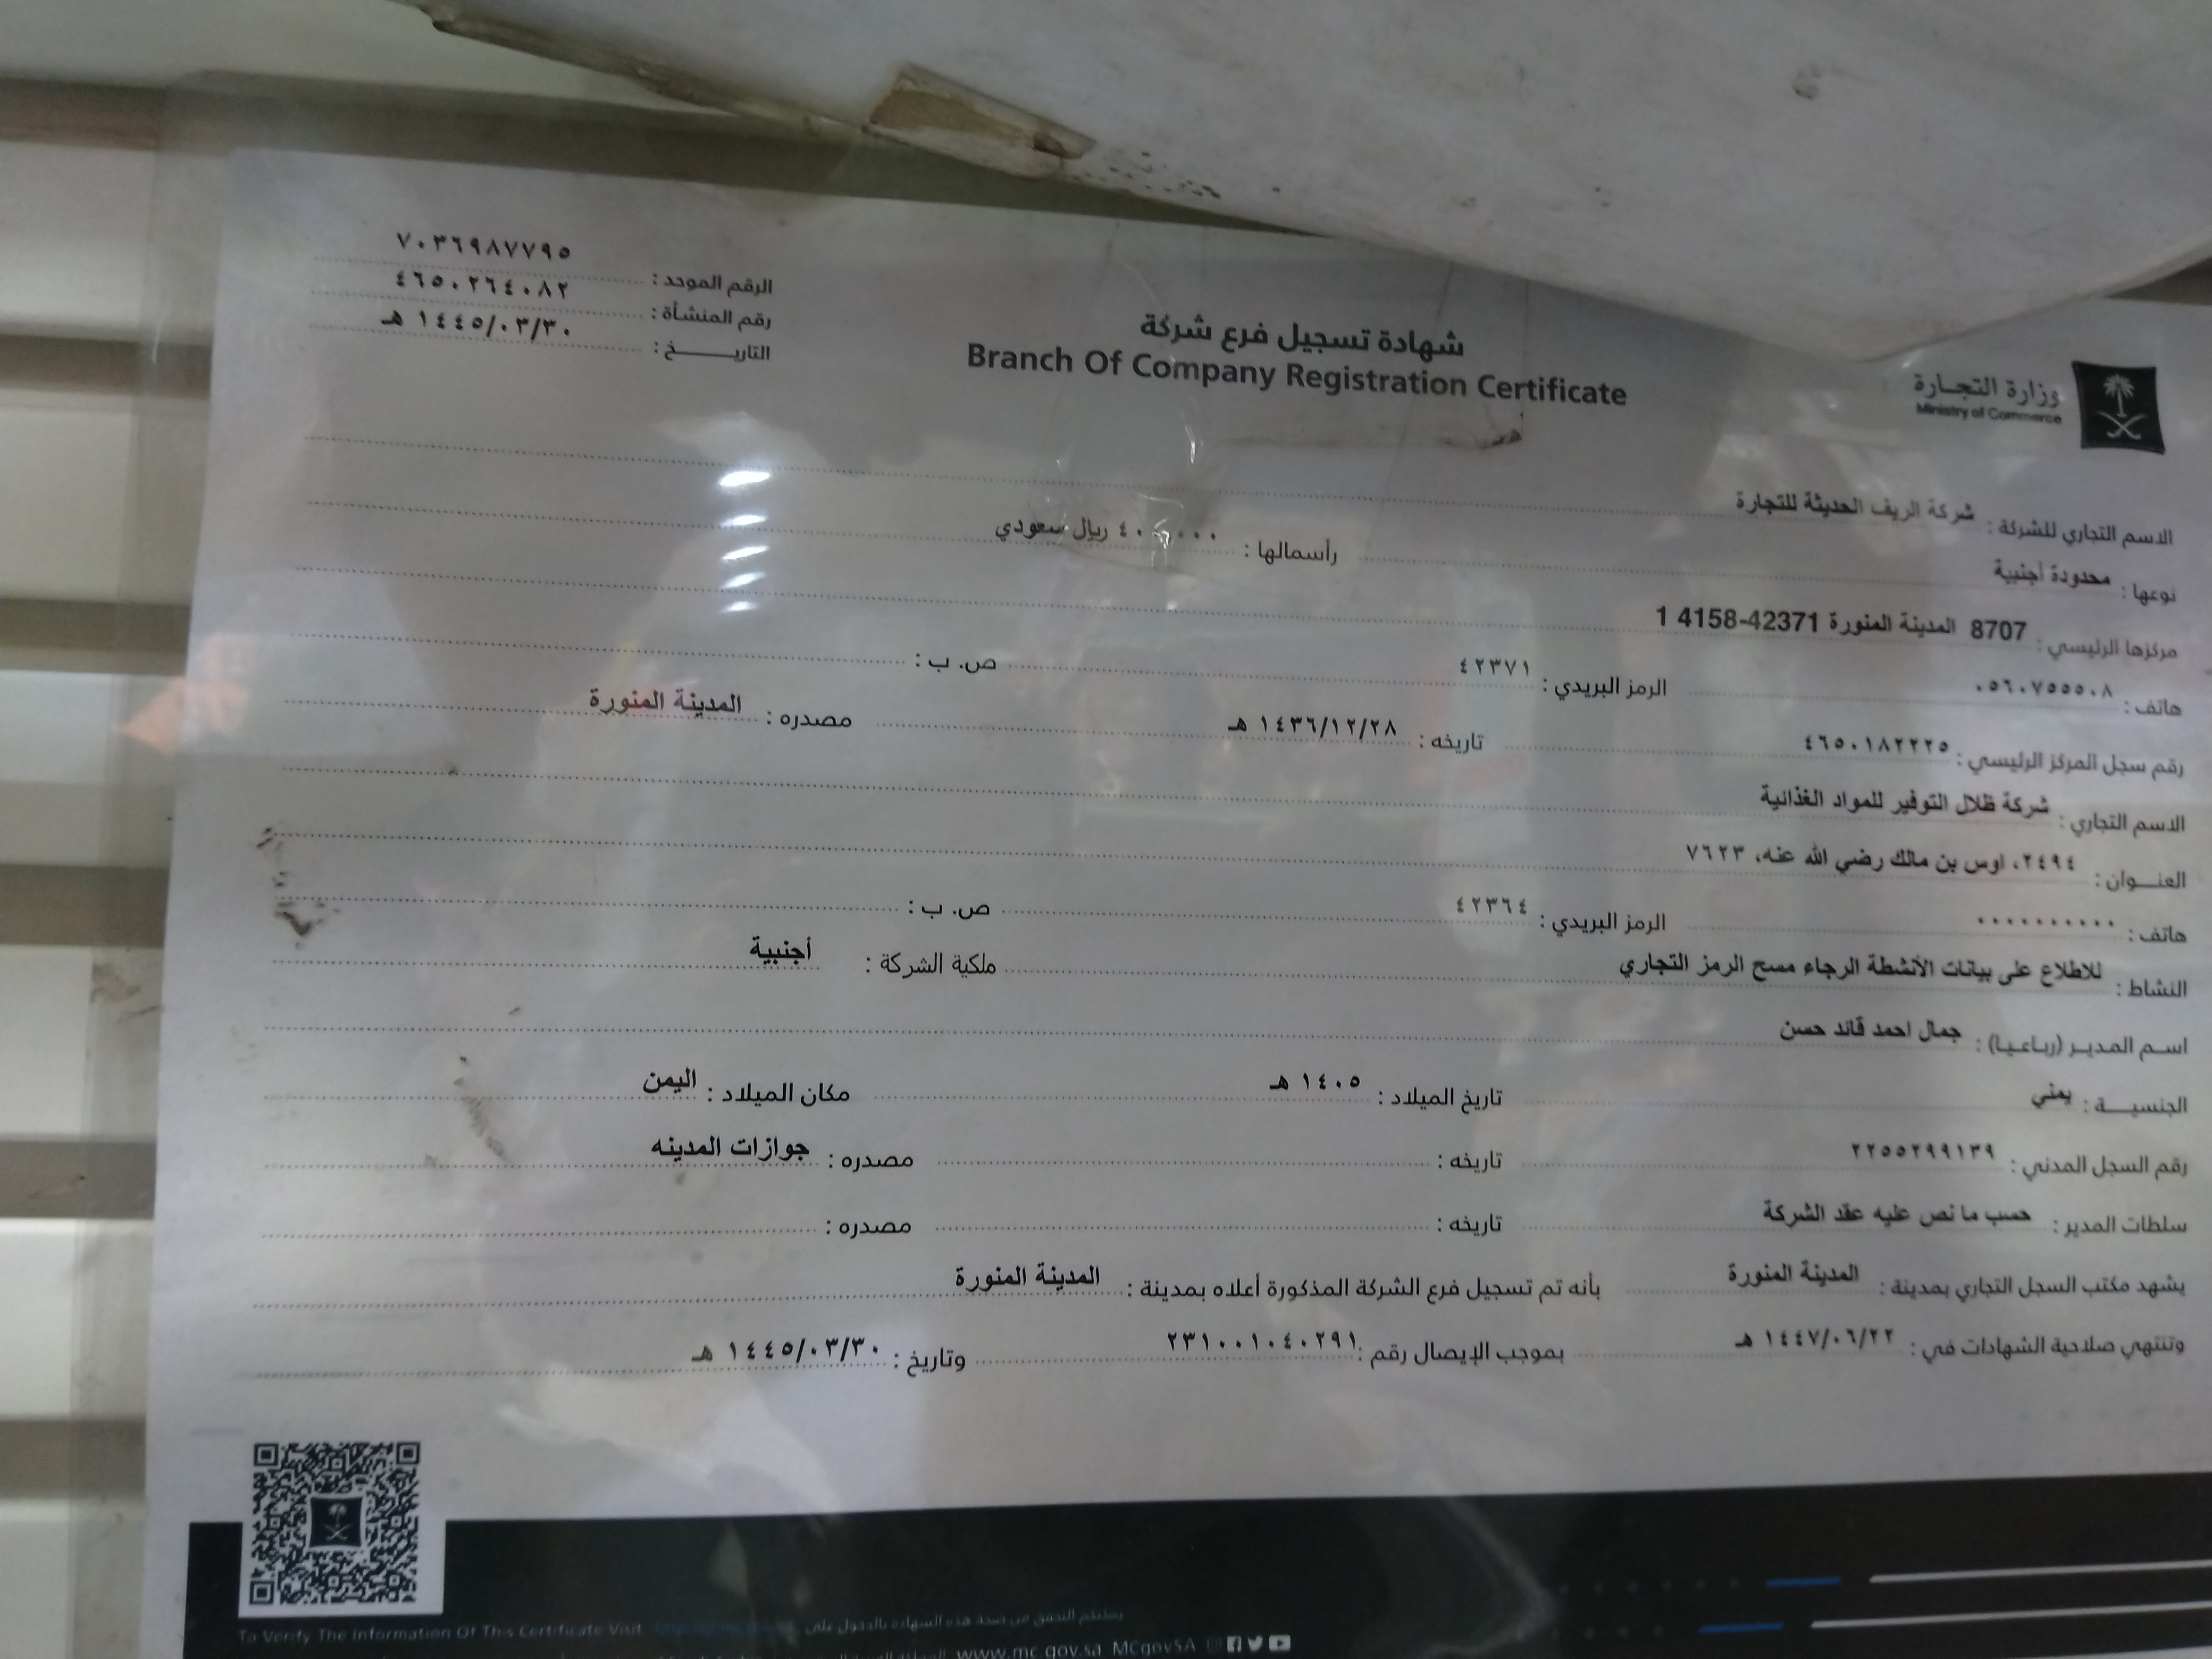 الرقم الموحد : ٧٠٣٦٩٨٧٧٩٥
رقم المنشأة : ٤٦٥٠٢٦٤٠٨٢
التاريـــــــخ : ١٤٤٥/٠٣/٣٠ هـ
شهادة تسجيل فرع شركة
Branch Of Company Registration Certificate
وزارة التجـارة
Ministry of Commerce
الاسم التجاري للشركة : شركة الريف الحديثة للتجارة
نوعها : محدودة أجنبية رأسمالها : ريال سعودي
مركزها الرئيسي : 8707 المدينة المنورة 42371-4158 1
هاتف : ٠٥٦٠٧٥٥٥٠٨ الرمز البريدي : ٤٢٣٧١ ص. ب :
رقم سجل المركز الرئيسي : ٤٦٥٠١٨٢٢٢٥ تاريخه : ١٤٣٦/١٢/٢٨ هـ مصدره : المدينة المنورة
الاسم التجاري : شركة ظلال التوفير للمواد الغذائية
العنـــوان : ٢٤٩٤، اوس بن مالك رضي الله عنه، ٧٦٢٣
هاتف : ٠٠٠٠٠٠٠٠٠٠ الرمز البريدي : ٤٢٣٦٤ ص. ب :
النشاط : للاطلاع على بيانات الأنشطة الرجاء مسح الرمز التجاري ملكية الشركة : أجنبية
اسـم المديـر (رباعيـا) : جمال احمد قائد حسن
الجنسيـــة : يمني تاريخ الميلاد : ١٤٠٥ هـ مكان الميلاد : اليمن
رقم السجل المدني : ٢٢٥٥٢٩٩١٣٩ تاريخه : مصدره : جوازات المدينه
سلطات المدير : حسب ما نص عليه عقد الشركة تاريخه : مصدره :
يشهد مكتب السجل التجاري بمدينة : المدينة المنورة بأنه تم تسجيل فرع الشركة المذكورة أعلاه بمدينة : المدينة المنورة
وتنتهي صلاحية الشهادات في : ١٤٤٧/٠٦/٢٢ هـ بموجب الإيصال رقم : ٢٣١٠٠١٠٤٠٢٩١ وتاريخ : ١٤٤٥/٠٣/٣٠ هـ
يمكنكم التحقق من صحة هذه الشهادة بالدخول على
To Verify The Information Of This Certificate Visit
www.mc.gov.sa MCgovSA